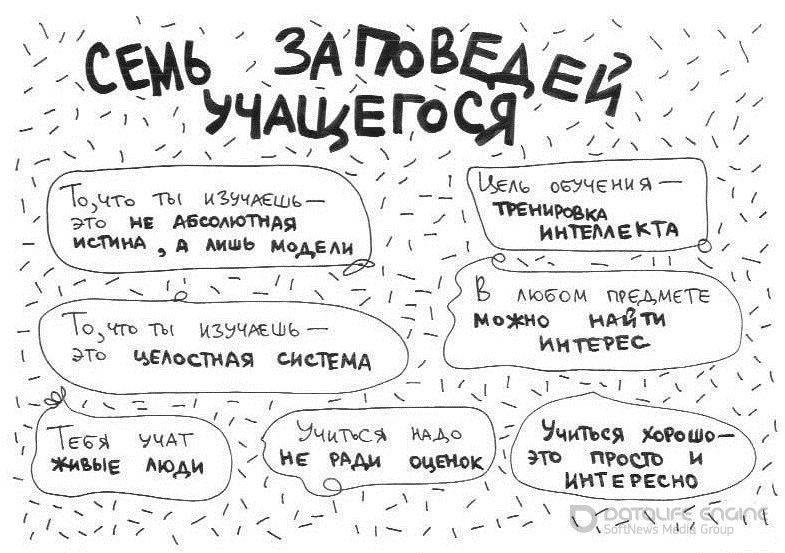 СЕМЬ ЗАПОВЕДЕЙ
УЧАЩЕГОСЯ
То, что ты изучаешь —
это не абсолютная
истина, а лишь модели
Цель обучения —
тренировка
интеллекта
То, что ты изучаешь —
это целостная система
В любом предмете
можно найти
интерес
Тебя учат
живые люди
Учиться надо
не ради оценок
Учиться хорошо —
это просто и
интересно
DATALIFE ENGINE
SoftNews Media Group